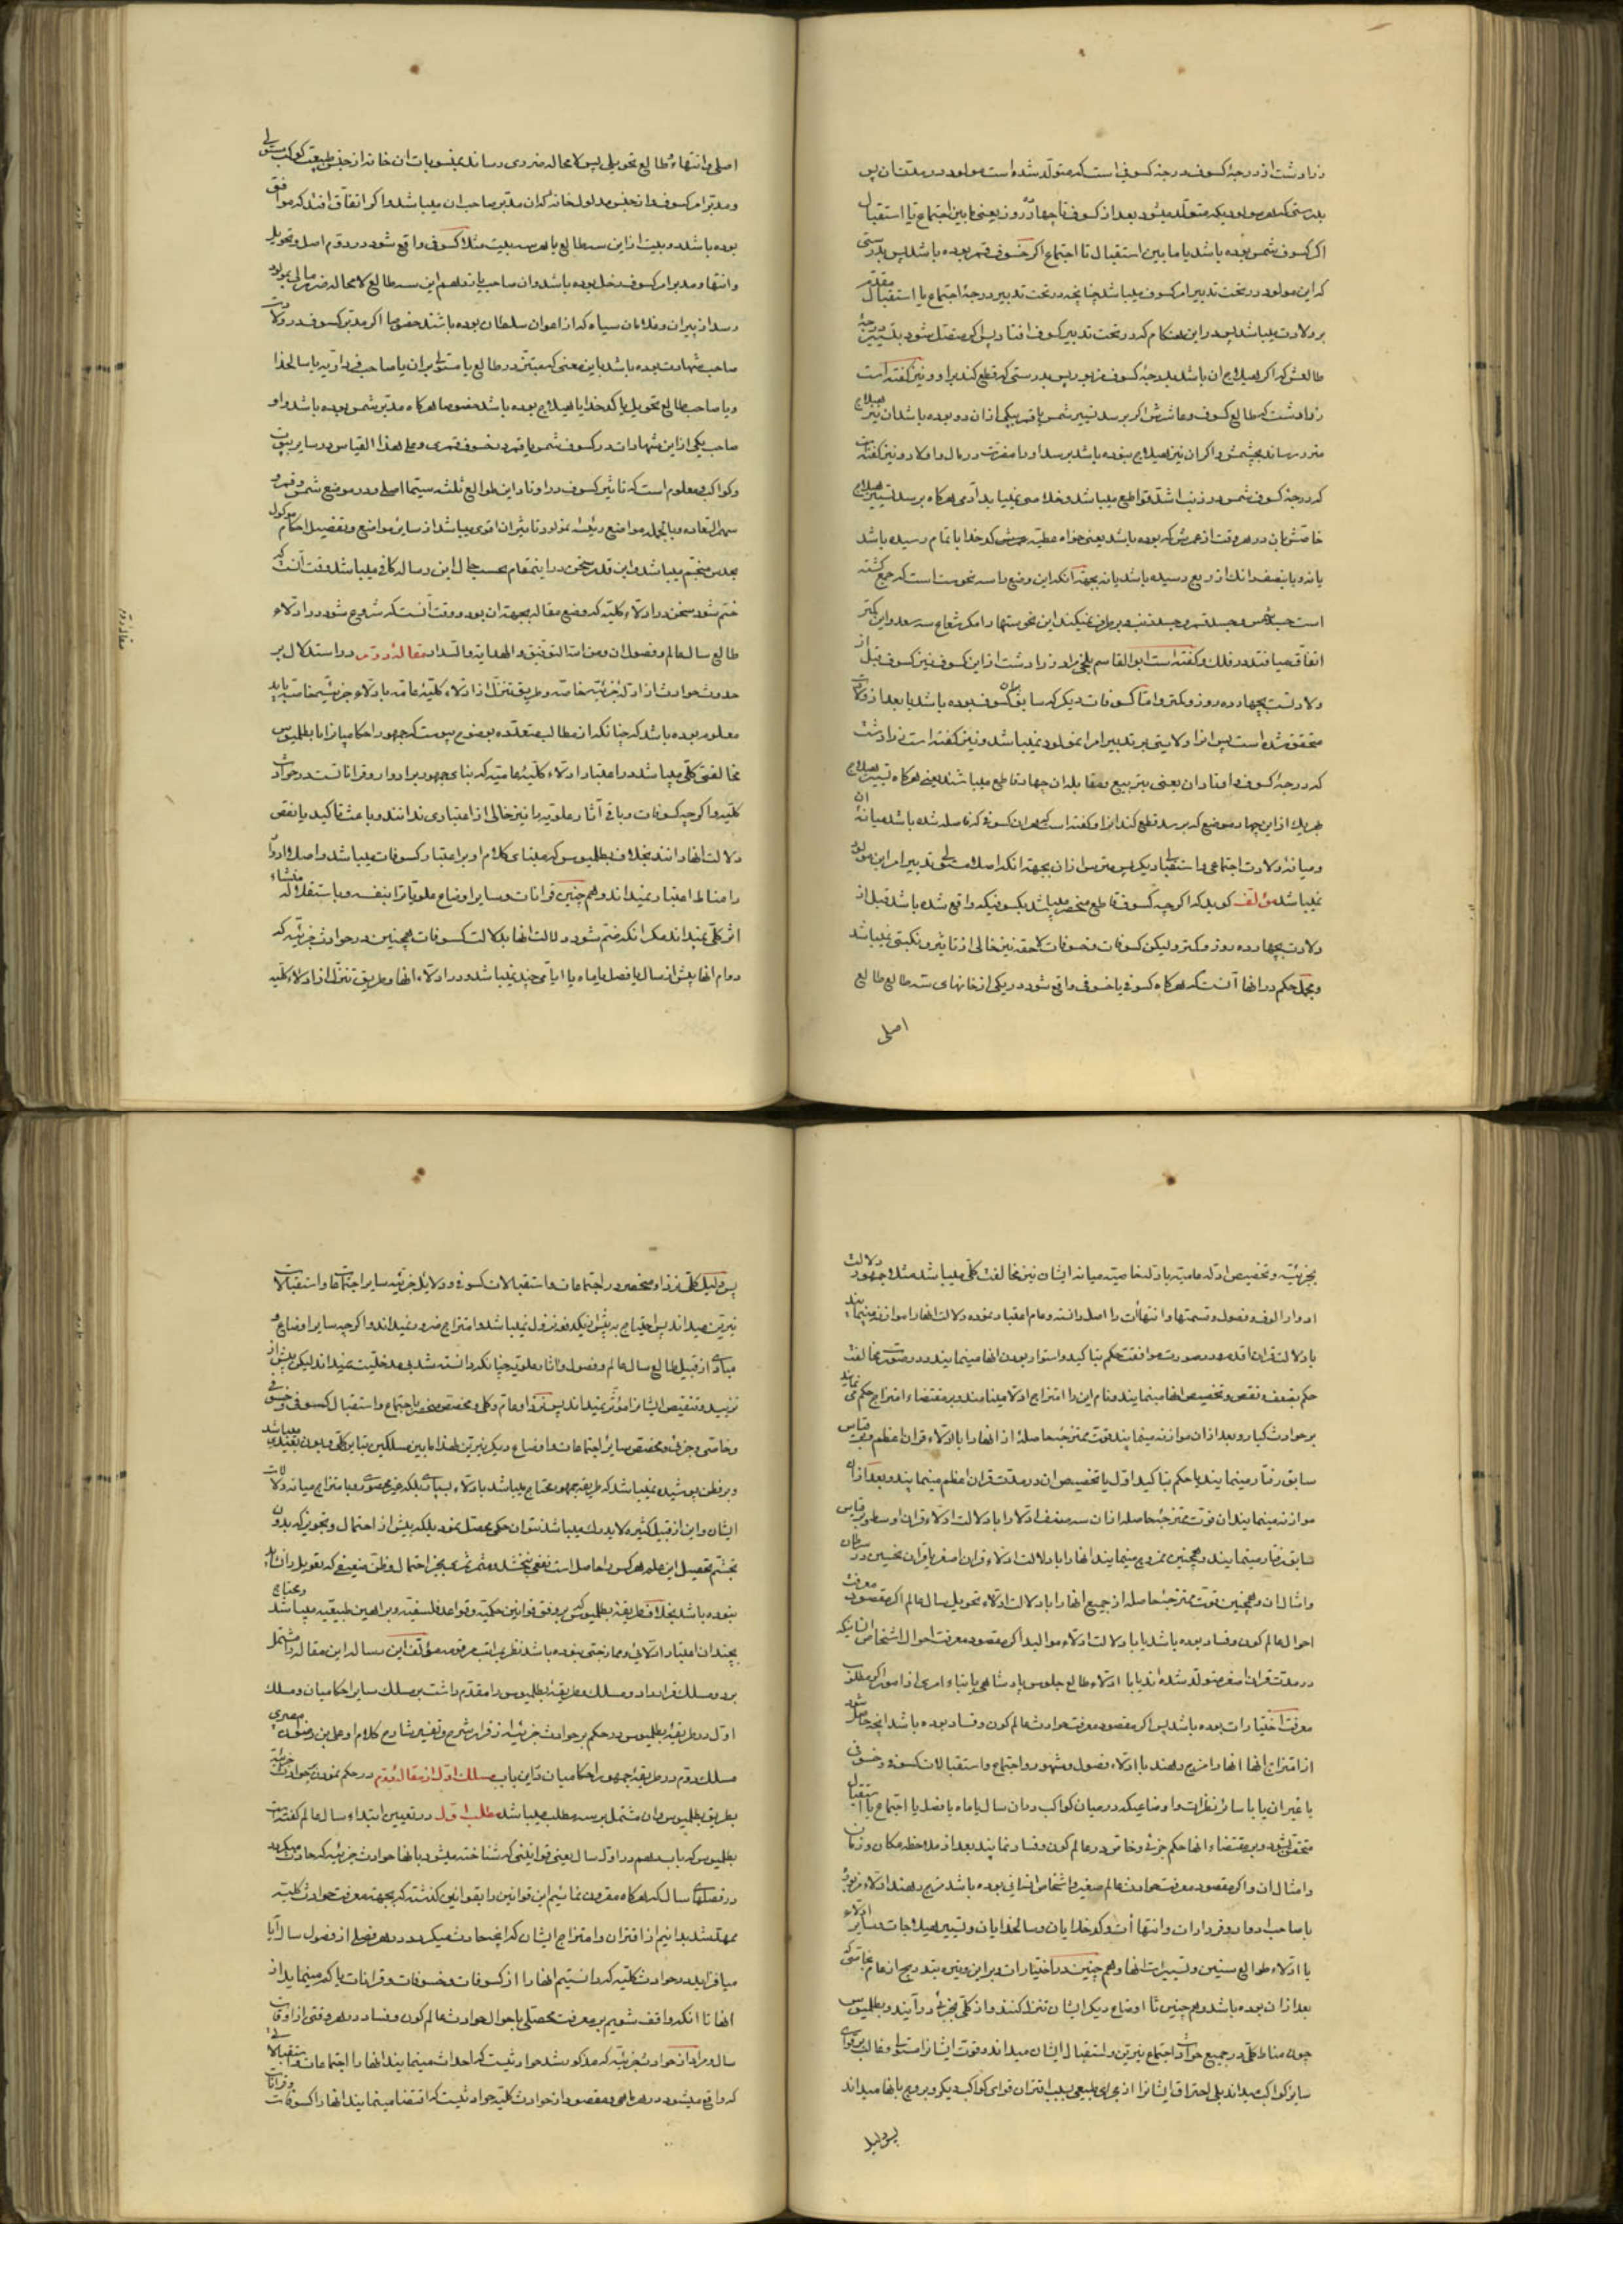 زرادشت از درجهٔ کسوف درجهٔ کسوفی است که متولد شده است مولود در مدت آن پس
بدرستی که هر مولودیکه متولد میشود بعد از کسوف تا چهارده روز یعنی مابین اجتماع تا استقبال
اکر کسوف شمس بوده باشد یا مابین استقبال تا اجتماع اکر خسوف قمر بوده باشد پس بدرستی
که این مولود در تحت تدبیر امر کسوف میباشد چنانچه در تحت تدبیر درجهٔ اجتماع یا استقبال مقدم
بر ولادت میباشد پس در این هنکام که در تحت تدبیر کسوف افتاد پس اکر متصل شود بتسییر درجهٔ
طالعش که اکر هیلاج آن باشد بدرجهٔ کسوف مزبور پس بدرستی که قطع کند بر او و نیز کفته است
زرادشت که طالع کسوف و عاشرش اکر برسد تسییر شمس یا قمر بیکی از آن دو بوده باشد آن نیر هیلاج
ضرر رساند بچشمش و اکر آن نیر هیلاج نبوده باشد برسد او را مضرت در مال و اولاد و نیز کفته است
که درجهٔ کسوف شمس در ذنب اشد قواطع میباشد و خلاصی نمییابد آدمی هرکاه برسد تسییر هیلاج
خاصتش بان در هر وقت از عمرش که بوده باشد یعنی خواه عطیه کدخدا باتمام رسیده باشد
یا نه و یا بنصف و آنکه از ربع رسیده باشد یا نه بجهة آنکه این وضع را سه نحوست است که جمع کشته
است جسد شمس و جسد قمر و جسد ذنب و برطرف نمیکند این نحوستها را مکر شعاع سه سعد و این کمتر
اتفاق میافتد در فلک و کفته است ابوالقاسم بلخی مراد زرادشت از این کسوف نیز کسوف قبل از
ولادتست بچهارده روز و کمتر و اما کسوفات دیکر که سابق باین کسوف بوده باشد یا بعد از ولادت
متحقق شده است پس انرا ولایتی بر تدبیر امر مولود نمیباشد و نیز کفته است زرادشت
که درجهٔ کسوف و اوتاد آن یعنی تربیع و مقابله آن چهار قاطع میباشند یعنی هرکاه تسییر هیلاج
بهر یک از این چهار موضع که برسد قطع کند انرا و کفته است که هر آن کسوفی که فاصله شده باشد میانهٔ آن
و میانهٔ ولادت اجتماعی یا استقبالی دیکر پس مترس از آن بجهة آنکه اصلا مستولی تدبیر امر این مولود
نمیباشد مؤلف کوید که اکرچه کسوف قاطع منحصر میباشد بکسوفیکه واقع شده باشد قبل از
ولادت بچهارده روز و کمتر ولیکن کسوفات و خسوفات لاحقه نیز خالی از تاثیر و نکبتی نمیباشد
و مجمل حکم در انها آنست که هرکاه کسوفی یا خسوفی واقع شود در یکی از خانهای سه طالع طالع
اصلی
اصلی و انتهاء و طالع تحویلی پس لا محاله ضرری رساند بمنسوبات ان خانه از جنس طبیعت کوکب مستولی
و مدبر امر کسوف و از جنس مدلول خانه که ان مدبر صاحب ان میباشد و اکر اتفاق افتد که موافق
بوده باشد دو بیت از این سه طالع یا هر سه بیت مثلا کسوفی واقع شود در دوم اصل و تحویل
و انتها و مدبر امر کسوف زحل بوده باشد و ان صاحب یازدهم این سه طالع لا محاله ضرر مالی بمولود
رسد از پیران و غلامان سیاه که از اعوان سلطان بوده باشند خصوصا اکر مدبر کسوف در ولادت
صاحب شهادت بوده باشد باین معنی که مبتز در طالع یا مستولی بر ان یا صاحب فرداریه یا سالخدا
و یا صاحب طالع تحویل یا کدخدا یا هیلاج بوده باشد خصوصا هرکاه مدبر شمس بوده باشد و او
صاحب یکی از این شهادات در کسوف شمس یا قمر در خسوف قمری و علی هذا القیاس در سایر بیوت
و کواکب و معلوم است که تاثیر کسوف در اوتاد این طوالع ثلثه سیما اصلی و در موضع شمس و قمر و
سهم السعاده و بالجمله مواضع رئیسه مولود تاثیر آن اقوی میباشد از سایر مواضع و تفصیل احکام موکول
بحدس منجم میباشد و این قدر سخن در اینمقام بحسب حال این رساله کافی میباشد وقت آنست که
ختم شود سخن در ادلاء کلیه که وضع مقاله بجهة ان بود و وقت آنست که شروع شود در ادلاء
طالع سال عالم و فصول آن و من الله التوفیق و الهدایة و السداد مقالهٔ دوم در استدلال بر
حدوث حوادث از ادلهٔ جزئیه خاصه و طریق تنزل از ادلاء کلیهٔ عامه بادلاء جزئیهٔ خاصه باید
معلوم بوده باشد که چنانکه از مطالب متعدده بوضوح پیوست که جمهور احکامیانرا با بطلمیوس
مخالفتی کلی میباشد در اعتبار ادلاء کلیهٔ عامیه که بنای جمهور بر ادوار و قرانانست در حوادث
کلیه و اکرچه کسوفات و باقی آثار علویه را نیز خالی از اعتباری ندانند و باعث تاکید یا نقص
دلالت انها دانند بخلاف بطلمیوس که بنای کلام او بر اعتبار کسوفات میباشد و اصلا ادوار
را مناط اعتبار نمیداند و همچنین قرانات و سایر اوضاع علویاترا بنفسه و باستقلاله منشاء
اثر کلی نمیداند مکر آنکه ضم شود دلالت انها بدلالت کسوفات همچنین در حوادث جزئیه که
دوام انها بیش از سال یا فصل یا ماه یا ایامی چند نمیباشد و در ادلاء انها و طریق تنزل از ادلاء کلیه
بجزئیه و تخصیص ادله عامیه بادله خاصیه میانه ایشان نیز مخالفت کلی میباشد مثلا جمهور دلالت
ادوار الوف و فصول و قسمتها و انتهاآت را اصل دانسته و عام اعتبار نموده دلالت انها را موازنه مینمایند
با دلالت قران اقدم و در صورت موافقت حکم بتاکید و استوار بودن انها مینمایند و در صورت مخالفت
حکم بضعف و نقص و تخصیص انها مینمایند و نام این را امتزاج ادلا مینامند و بر مقتضاء امتزاج حکم می نمایند
بر حوادث کبار و بعد از ان موازنه مینمایند قوت ممتزجهٔ حاصلهٔ از انها را با ادلاء قران اعظم و بقیاس
سابق رفتار مینمایند یا حکم بتاکید اول یا تخصیص ان در مدت قران اعظم مینمایند و بعد از ان
موازنه مینمایند ان قوت ممتزجهٔ حاصله از ان سه صنف ادلا را با دلالت ادلاء قران اوسط و بر قیاس
سابق رفتار مینمایند و همچنین ممزوج مینمایند انها را با دلالت ادلاء قران اصغر یا قران نحسین در سرطان
و امثال ان و همچنین قوت ممتزجهٔ حاصله از جمیع انها را با دلالت ادلاء تحویل سال عالم اکر مقصود معرفت
احوال عالم کون و فساد بوده باشد یا با دلالت ادلاء موالید اکر مقصود معرفت احوال اشخاص انسانیکه
در مدت قران اصغر متولد شده اند یا با ادلاء طالع جلوس پادشاهی یا بناء امری از امور اکر مطلوب
معرفت اختیارات بوده باشد پس اکر مقصود معرفت حوادث عالم کون و فساد بوده باشد انچه حاصل شود
از امتزاج انها انها را مزج دهند با ادلاء فصول و شهور و اجتماع و استقبالات کسوفی و خسوفی
یا غیر ان یا با سایر نظرات و اوضاعیکه در میان کواکب در ان سال یا ماه یا فصل یا اجتماع یا استقبال
متحقق شود و بر مقتضاء انها حکم جزئی و خاص در عالم کون و فساد نمایند بعد از ملاحظه مکان و زمان
و امثال ان و اکر مقصود معرفت حوادث عالم صغیر و اشخاص انسانی بوده باشد مزج دهند ادلاء مزبور
با صاحب ادوار و فردارات و انتهاآت و کدخدایان و سالخدایان و تسییر هیلاجات و سایر ادلاء
یا ادلاء طوالع سنین و تسییرات انها و همچنین در اختیارات و بر این وتیره بتدریج از عام بخاصی که
بعد از ان بوده باشد و همچنین تا اوضاع دیکر ایشان تنزل کنند و از کلی بجزئی در آیند و بطلمیوس
چون مناط کلی در جمیع حوادث اجتماع نیرین و استقبال ایشان میداند و قوت ایشانرا مستولی و غالب بر قوای
سایر کواکب میداند بلی احتراق ایشانرا از مجرای طبیعی بسبب اقتران قوای کواکب دیکر و بروج بانها میداند
پس دلیل
پس دلیل کلی نزد او منحصر در اجتماعات و استقبالات کسوفی و دلایل جزئیه سایر اجتماعات و استقبالات
نیرین میداند پس احتیاج به بیش از یکدفعه نزول نمیباشد و امتزاج ضرور نمیداند و اکرچه سایر اوضاع و
مبادی از قبیل طالع سال عالم و فصول و آثار علویه چنانکه دانسته شد بی مدخلیت نمیداند لیکن بیش از
تزیید و تنقیص ایشانرا مؤثر نمیداند پس نزد او عام و کلی و مخصص منحصر باجتماع و استقبال کسوفی و خسوفی
و خاصی و جزئی و مخصص سایر اجتماعات و اوضاع دیکر نیرین لهذا مابین مسلکین تباین کلی و بون بعیدی میباشد
و بر فطن پوشیده نمیباشد که طریقهٔ جمهور محتاج میباشد بادلاء بسیاری بلکه غیر محصوره و با امتزاج میانه دلالات
ایشان و این از قبیل کثیره لا یدرک میباشد نتوان حکمی محصل نمود بلکه بیش از احتمال و تجویز که بدون
تجشم تحصیل این علم هر کس را حاصل است نفعی نبخشد و مثمر ثمری بجز احتمال و ظن ضعیفی که تعویل را نشاید
نبوده باشد بخلاف طریقهٔ بطلمیوس که بر وفق قوانین حکمیه و قواعد فلسفیه و براهین طبیعیه میباشد و محتاج
بچندان اعتبار ادلائی و ممازجتی نبوده باشد نظر بمراتب مرقومه مؤلف این رساله این مقاله را مشتمل
بر دو مسلک قرار داد و مسلک و طریقهٔ بطلمیوس را مقدم داشت بر مسلک سایر احکامیان و مسلک
اول در طریقهٔ بطلمیوس در حکم بر حوادث جزئیه از قرار شرح و تفسیر شارح کلام او علی بن رضوان مصری
مسلک دوم در طریقهٔ جمهور احکامیان در این باب مسلک اول از مقالهٔ دوم در حکم نمودن بر حوادث جزئیه
بطریق بطلمیوس و ان مشتمل بر سه مطلب میباشد مطلب اول در تعیین ابتداء سال عالم کفته است
بطلمیوس که باب دهم در اول سال یعنی قوانینی که شناخته میشود بانها حوادث جزئیه که حادث میکردد
در فصلهای سال که هرکاه مقرون نمائیم این قوانین را بقوانین کذشته که بجهة معرفت حوادث کلیه
ممهد شد بدانیم از اقتران و امتزاج ایشان که انچه حادث میکردد در هر فصلی از فصول سال آیا
میافزاید در حوادث کلیه که دانستیم انها را از کسوفات و خسوفات و قرانات یا کم مینماید از
انها تا آنکه واقف شویم بر معرفت محصلی باحوال حوادث عالم کون و فساد در هر وقتی از اوقات
سال و مراد از حوادث جزئیه که مذکور شد حوادثیست که احداث مینمایند انها را اجتماعات و استقبالاتی
که واقع میشود در هر ماهی و مقصود از حوادث کلیه حوادثیست که اقتضا مینمایند انها را کسوفات و قرانات
مقالهٔ دوم